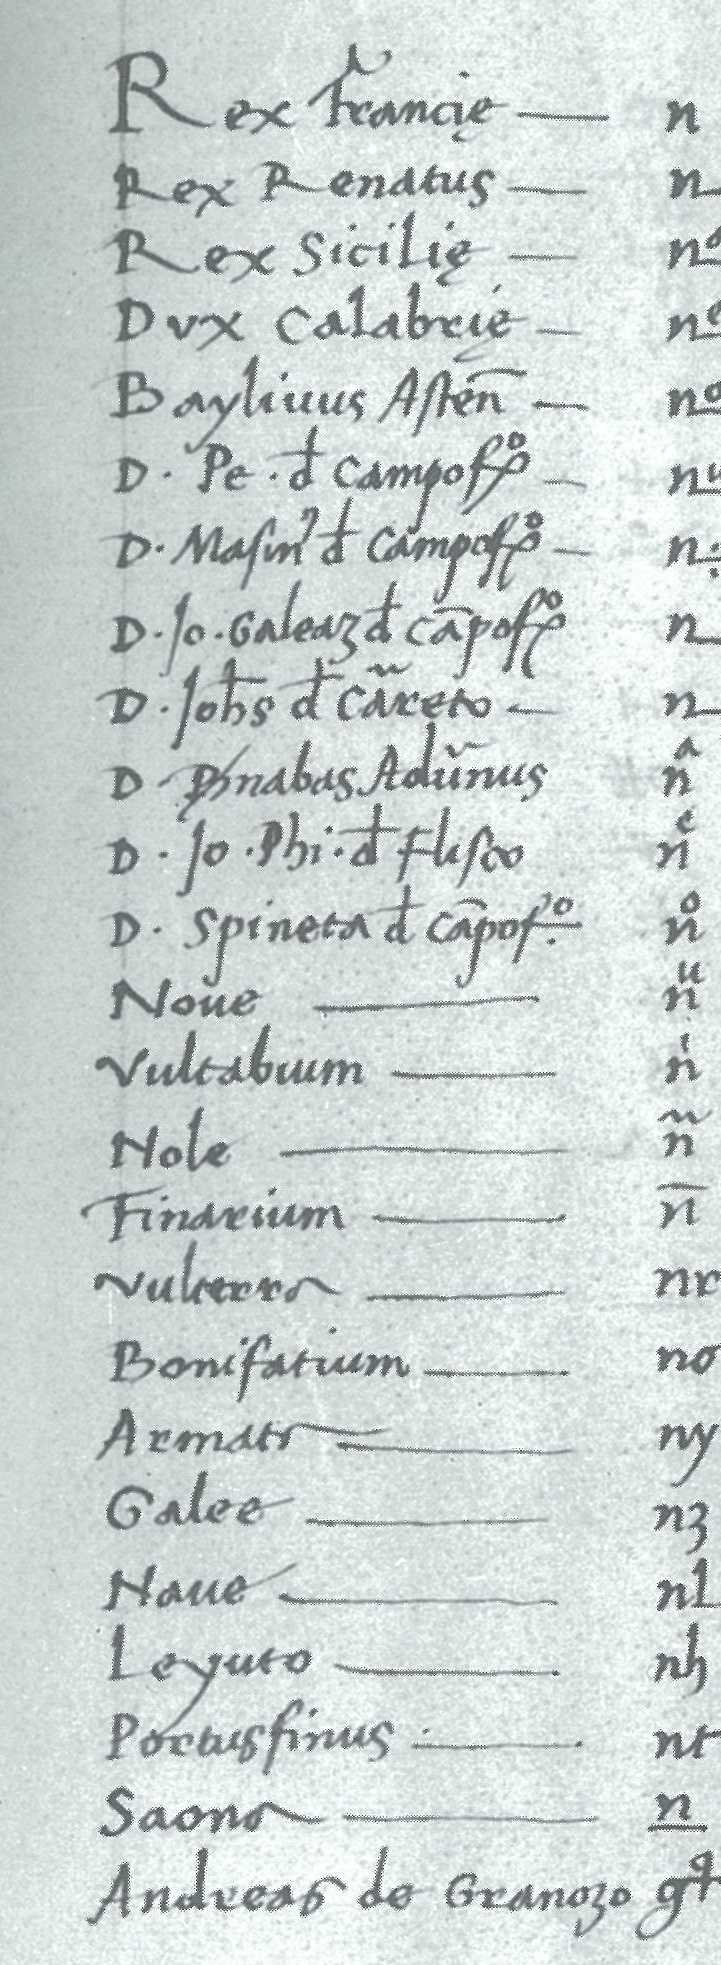 Rex Francie — n
Rex Renatus — n
Rex Sicilię — nº
Dux Calabrie — nᵉ
Bayliuus Asteñ — nº
D. Pe. đ Campofº — nᵘ
D. Masinꝰ đ Campofº — n
D. Jo. Galeaz đ Cāpofº n
D. Joħs đ Cãreto — n
D. Bnabas Adũnus nᵃ
D. Jo. Phi. đ Flisco nᵉ
D. Spineta đ Cāpof.º nº
Noue — nᵘ
Vultabium — nⁱ
Nole — ñ
Finarium — n̄
Vulterra — nr
Bonifatium — no
Armata — ny
Galee — nz
Naue — nl
Leyuto — nh
Portusfinus — nt
Saona — n
Andreas de Granozo g